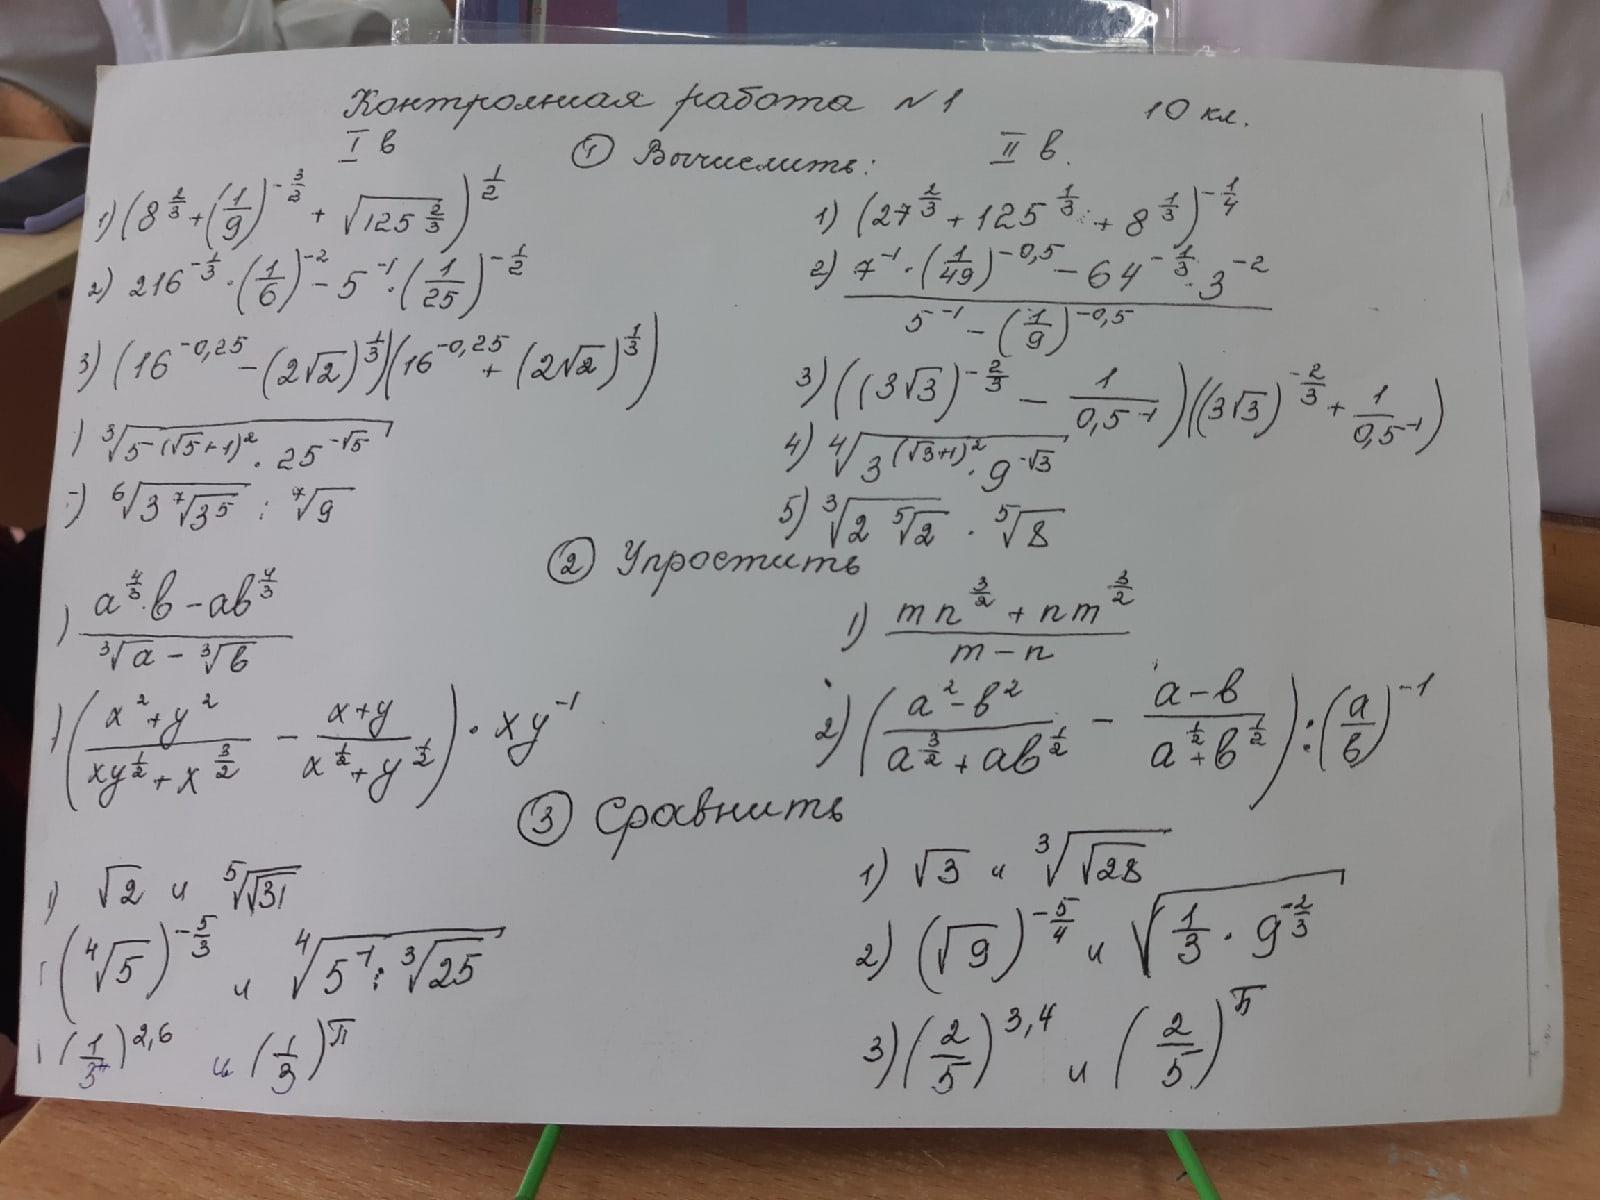 Контролная работа №1 10 кл.
I в ① Вычислить: II в.
1) (8^{2/3} + (1/9)^{-3/2} + √(125^{2/3}))^{1/2}
2) 216^{-1/3} · (1/6)^{-2} - 5^{-1} · (1/25)^{-1/2}
3) (16^{-0,25} - (2√2)^{1/3})(16^{-0,25} + (2√2)^{1/3})
) ∛(5^{(√5+1)²} · 25^{-√5})
) ⁶√(3 ⁷√(3⁵)) : ⁷√9
1) (27^{2/3} + 125^{1/3} + 8^{1/3})^{-1/4}
2) (7^{-1} · (1/49)^{-0,5} - 64^{-1/3} · 3^{-2}) / (5^{-1} - (1/9)^{-0,5})
3) ((3√3)^{-2/3} - 1/0,5^{-1})((3√3)^{-2/3} + 1/0,5^{-1})
4) ⁴√(3^{(√3+1)²} · 9^{-√3})
5) ∛(2 ⁵√2) · ⁵√8
② Упростить
) (a^{4/3}·в - aв^{4/3}) / (∛a - ∛в)
) ((x² + y²)/(xy^{1/2} + x^{3/2}) - (x+y)/(x^{1/2} + y^{1/2})) · xy^{-1}
1) (mn^{3/2} + nm^{3/2}) / (m - n)
2) ((a² - в²)/(a^{3/2} + aв^{1/2}) - (a - в)/(a^{1/2} + в^{1/2})) : (a/в)^{-1}
③ Сравнить
1) √2 и ⁵√√31
(⁴√5)^{-5/3} и ⁴√(5^{-1} : ∛25)
(1/3)^{2,6} и (1/3)^π
1) √3 и ∛√28
2) (√9)^{-5/4} и √(1/3 · 9^{-2/3})
3) (2/5)^{3,4} и (2/5)^π